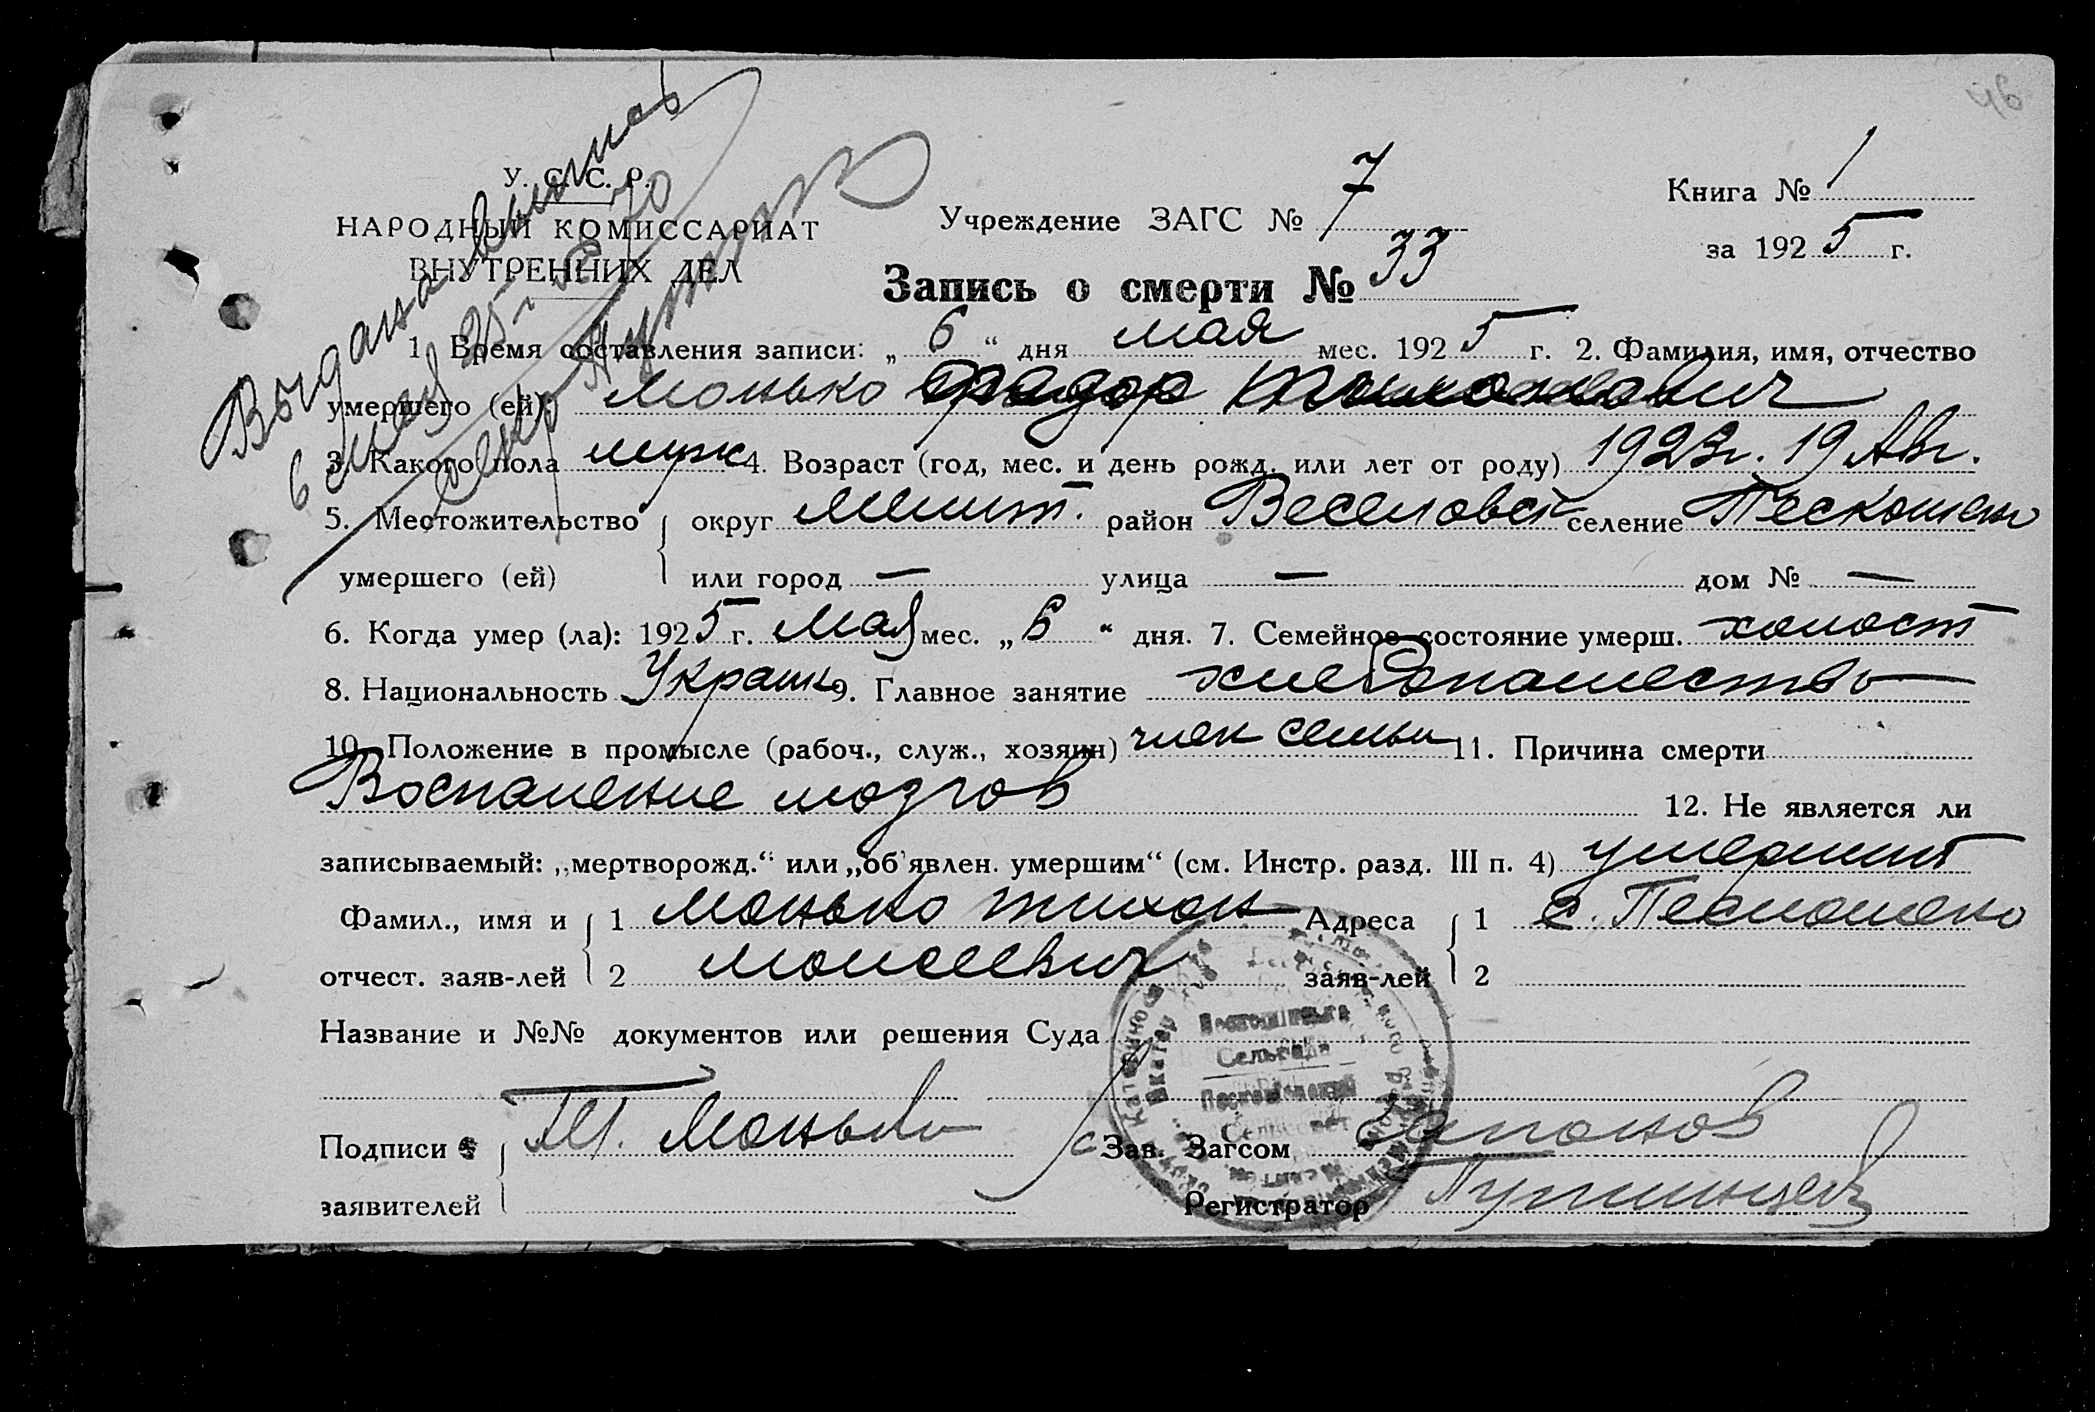 46
У. С. С. Р.
НАРОДНЫЙ КОМИССАРИАТ
ВНУТРЕННИХ ДЕЛ
Выдана выпись
6 мая 25 г. № 70
Секр.
Учреждение ЗАГС № 7
Книга № 1
за 1925 г.
Запись о смерти № 33
1. Время составления записи: „6“ дня мая мес. 1925 г. 2. Фамилия, имя, отчество
умершего (ей) Монько Фядор Тихонович
3. Какого пола муж 4. Возраст (год, мес. и день рожд. или лет от роду) 1923 г. 19 Авг.
5. Местожительство округ Мелит. район Веселовск селение Пескошено
умершего (ей) или город — улица — дом № —
6. Когда умер (ла): 1925 г. Мая мес. „6“ дня. 7. Семейное состояние умерш. холост
8. Национальность Украин 9. Главное занятие хлебопашество
10. Положение в промысле (рабоч., служ., хозяин) член семьи 11. Причина смерти
Воспаление мозгов 12. Не является ли
записываемый: „мертворожд.“ или „об'явлен. умершим“ (см. Инстр. разд. III п. 4) умерший
Фамил., имя и 1 Монько Тихон Адреса 1 с. Пескошено
отчест. заяв-лей 2 Моисеевич заяв-лей 2
Название и №№ документов или решения Суда
Сельрада
Подписи Т. Монько Зав. Загсом Гапонов
заявителей Регистратор